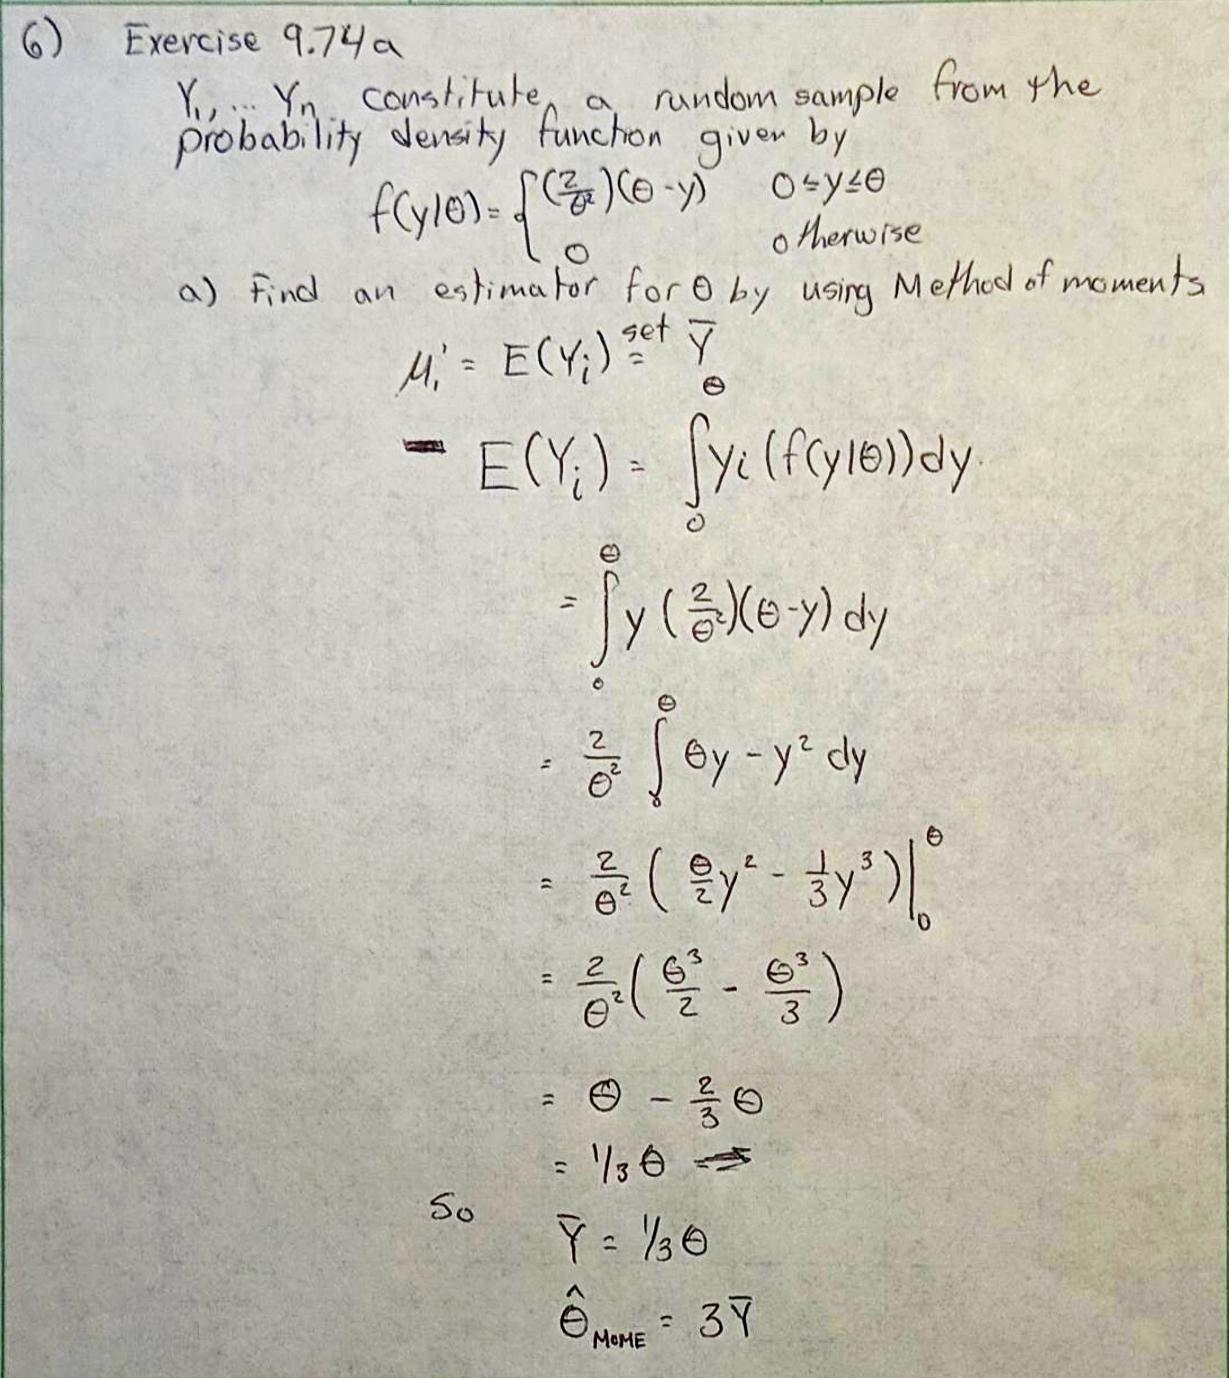 6) Exercise 9.74a
Y₁, ... Yₙ constitute a random sample from the
probability density function given by
f(y|θ) = { (2/θ²)(θ-y) 0≤y≤θ
0 otherwise
a) Find an estimator for θ by using Method of moments
μ₁' = E(Yᵢ) set = Ȳ
E(Yᵢ) = ∫₀^θ yi (f(y|θ))dy.
= ∫₀^θ y (2/θ²)(θ-y) dy
= 2/θ² ∫₀^θ θy - y² dy
= 2/θ² ( θ/2 y² - 1/3 y³ )|₀^θ
= 2/θ² ( θ³/2 - θ³/3 )
= θ - 2/3 θ
= 1/3 θ
So Ȳ = 1/3 θ
θ̂ MOME = 3Ȳ